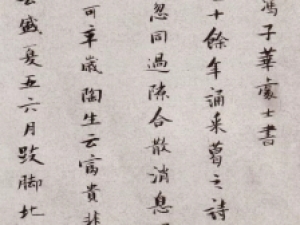 馮子華處士書
十餘年誦采葛之詩
忽同過隙合散消息
可卒歲陶生云富貴非
盛夏五六月跂脚北